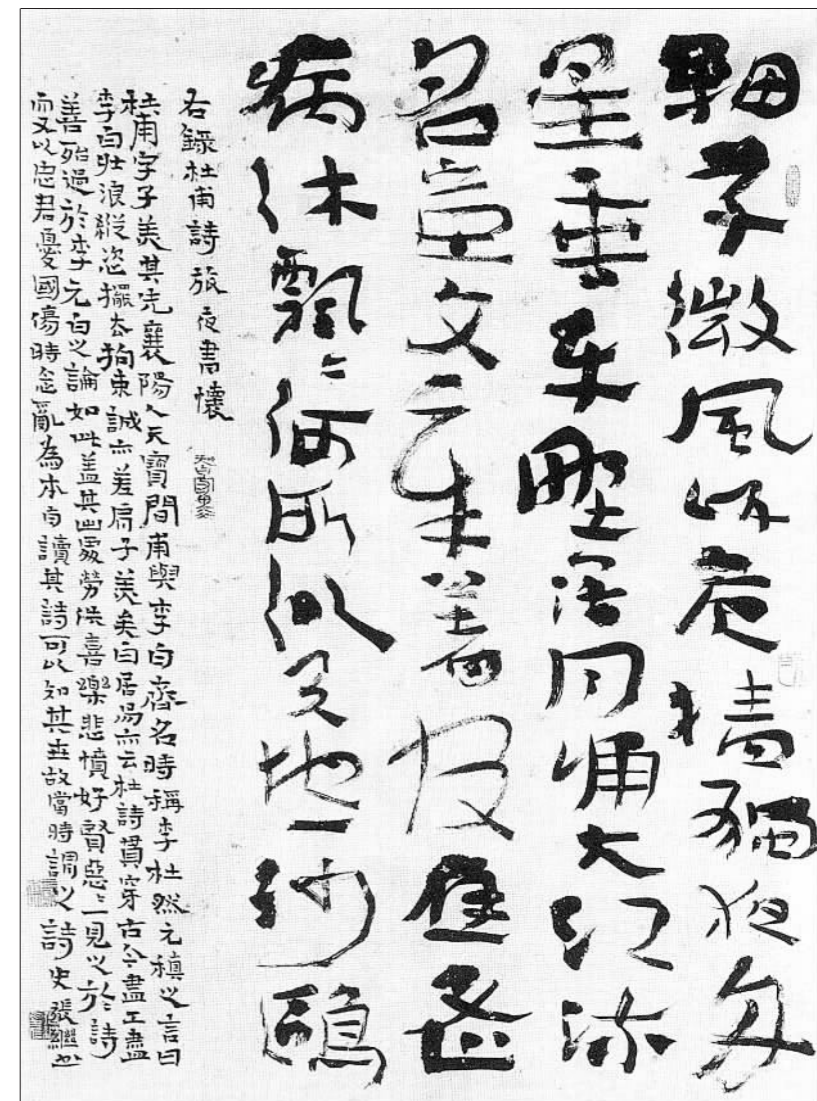 細草微風岸危檣獨夜舟
星垂平野闊月湧大江流
名豈文章著官應老
病休飄〻何所似天地一沙鷗
右錄杜甫詩旅夜書懷
杜甫字子美其先襄陽人天寶間甫與李白齊名時稱李杜然元稹之言曰
李白壯浪縱恣擺去拘束誠亦差肩子美矣白居易亦云杜詩貫穿古今盡工盡
善殆過於李元白之論如此蓋其出處勞佚喜樂悲憤好賢惡〻一見之於詩
而又以忠君憂國傷時念亂為本旨讀其詩可以知其世故當時謂之詩史張繼書